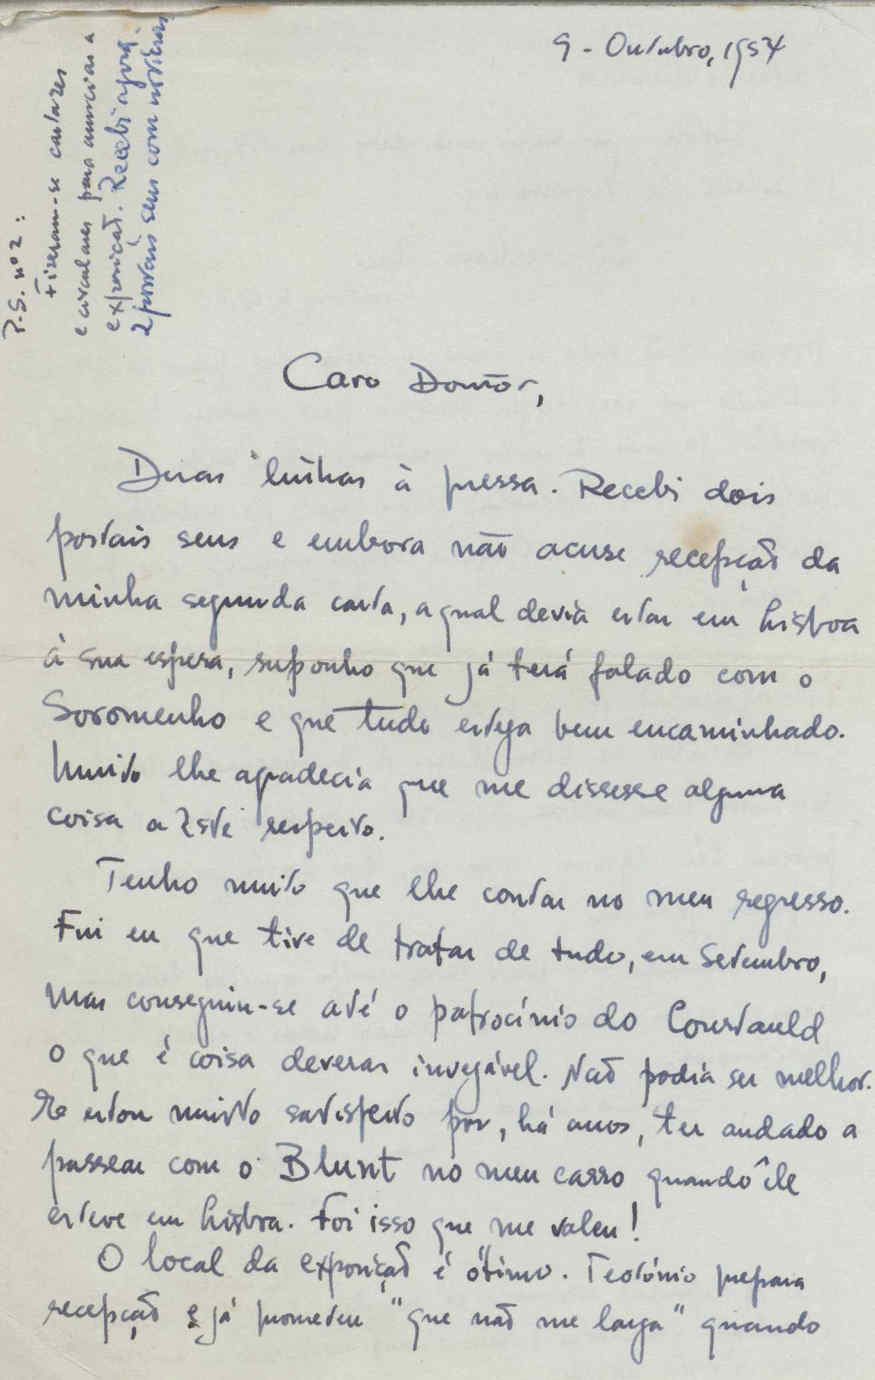 9 - Outubro, 1957
P.S. nº 2:
Fizeram-se cartazes
e circulares para anunciar a
exposição. Recebi agora
2 postais seus com notícias
Caro Doutor,
Duas linhas à pressa. Recebi dois
postais seus e embora não acuse recepção da
minha segunda carta, a qual devia estar em Lisboa
à sua espera, suponho que já terá falado com o
Soromenho e que tudo esteja bem encaminhado.
Muito lhe agradecia que me dissesse alguma
coisa a este respeito.
Tenho muito que lhe contar no meu regresso.
Fui eu que tive de tratar de tudo, em Setembro,
mas conseguiu-se até o patrocínio do Courtauld
o que é coisa deveras invejável. Não podia ser melhor.
estou muito satisfeito por, há anos, ter andado a
passear com o Blunt no meu carro quando êle
esteve em Lisboa. Foi isso que me valeu!
O local da exposição é óptimo. Teotónio prepara
recepção e já prometeu "que não me larga" quando